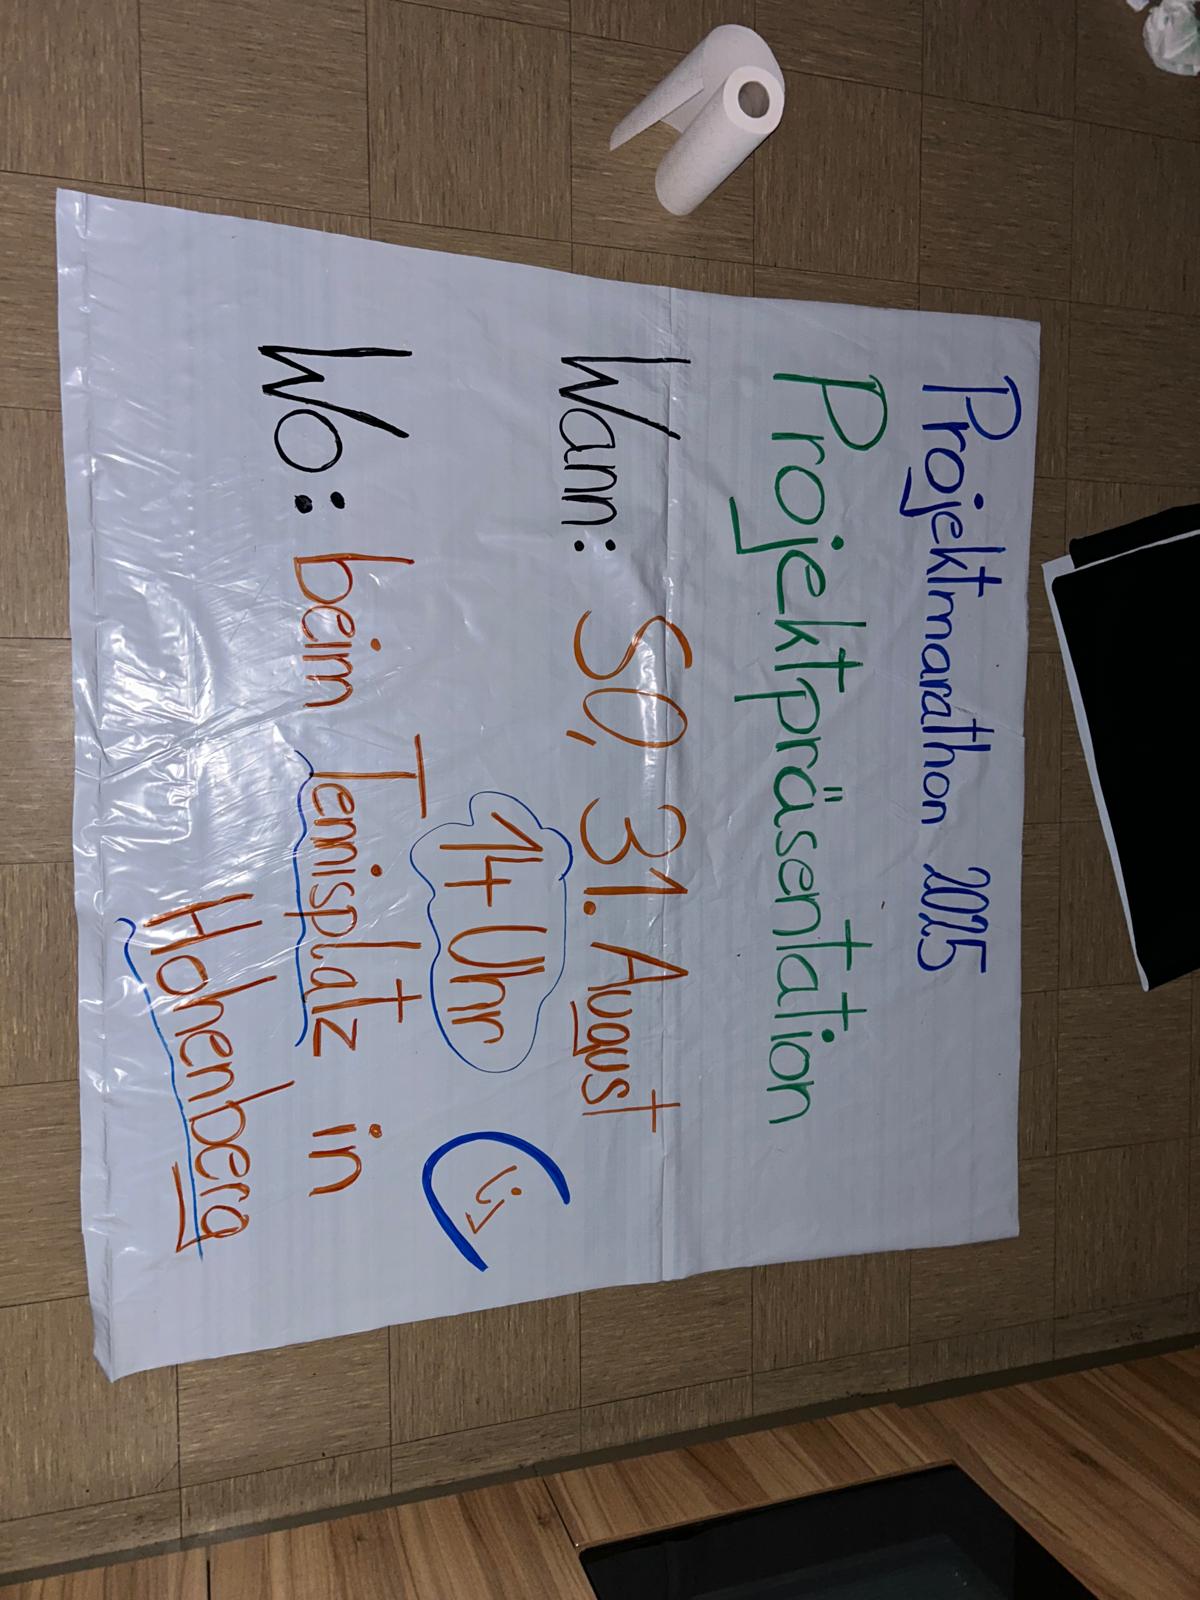 Projektmarathon 2025
Projektpräsentation
Wann: SO, 31. August
14 Uhr
Wo: beim Tennisplatz in
Hohenberg